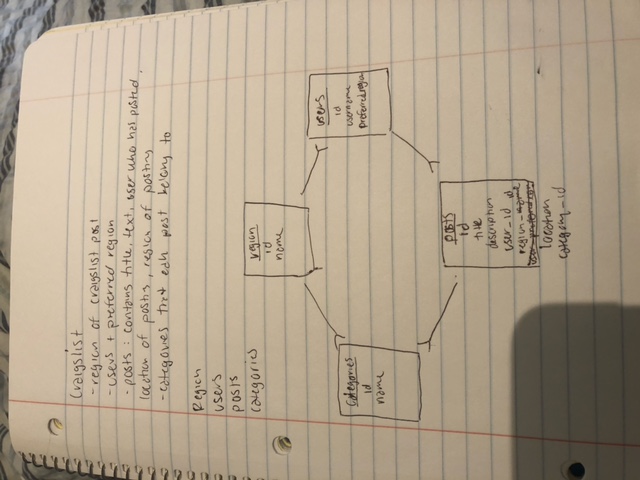 Craigslist
- region of craigslist post
- users + preferred region
- posts: contains title, text, user who has posted,
location of posting, region of posting
- categories that each post belong to
Region
users
posts
categories
region
id
name
categories
id
name
users
id
username
preferredregion
posts
id
title
description
user_id
region_ id
location
category_id